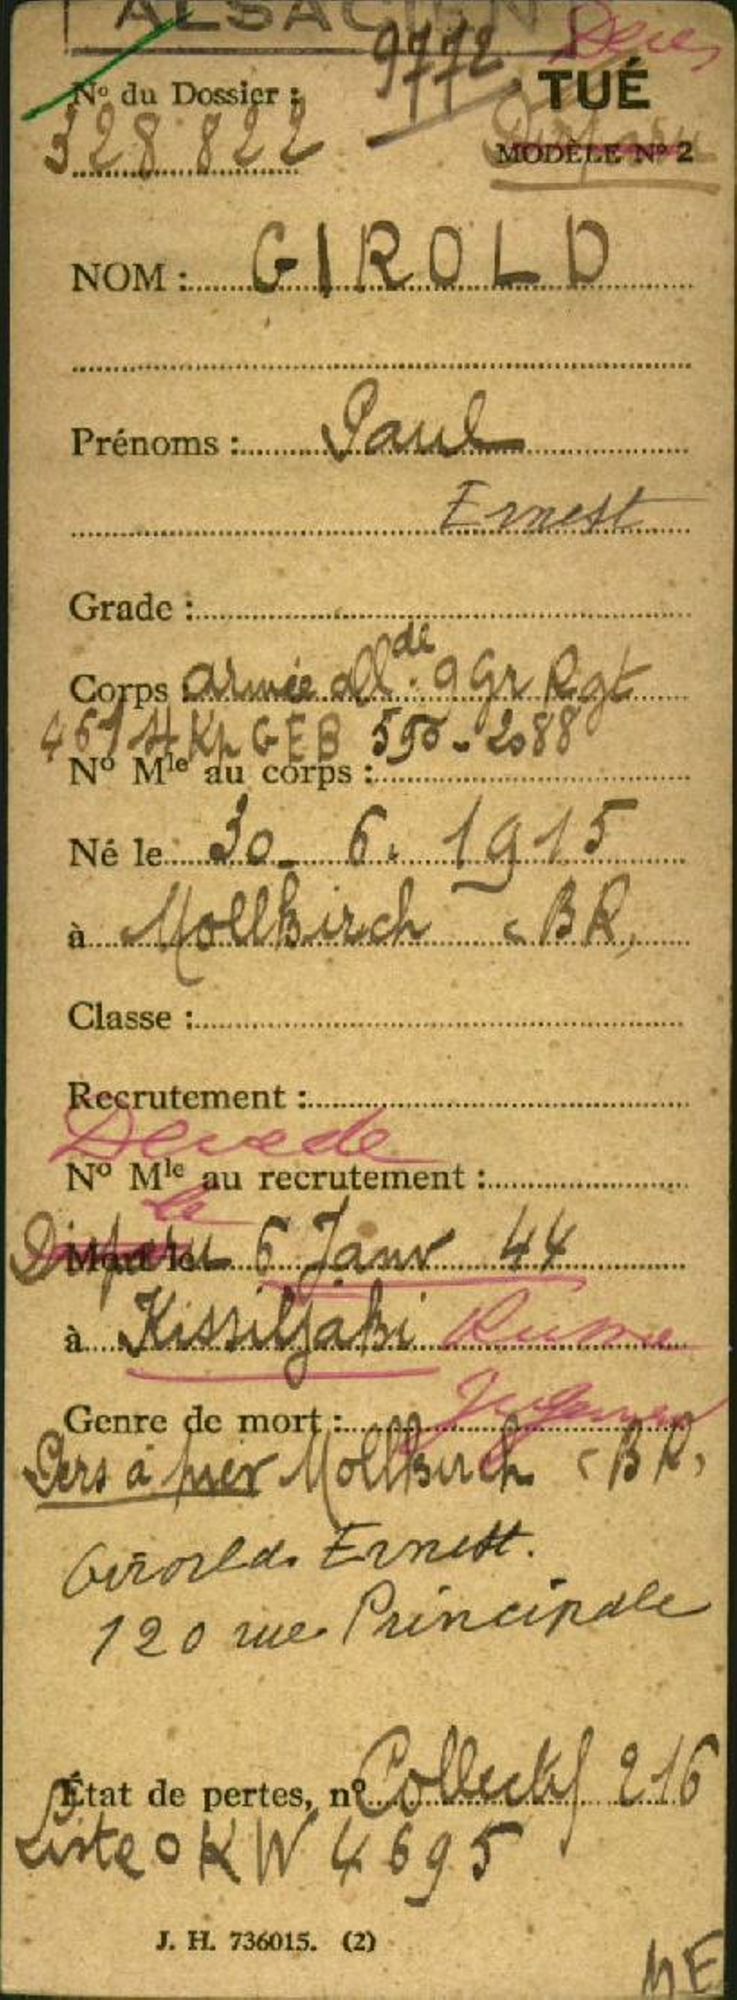 ALSACIEN
9772
N° du Dossier :
328 822
TUÉ
Disparu
MODÈLE N° 2
NOM : GIROLD
Prénoms : Paul
Ernest
Grade :
Corps : armée all.de 9 Gr Rgt
Kp GEB
N° Mle au corps :
Né le 30_ 6. 1915
à Mollkirch BR.
Classe :
Recrutement :
Decede
N° Mle au recrutement :
le
Disparu Mort le 6 Janv 44
à Kissiljaki
Genre de mort : Jugement
Pers à prév Mollkirch BR,
Girold Ernest.
120 rue Principale
État de pertes, n° Collectif 216
Liste OKW 4695
J. H. 736015. (2)